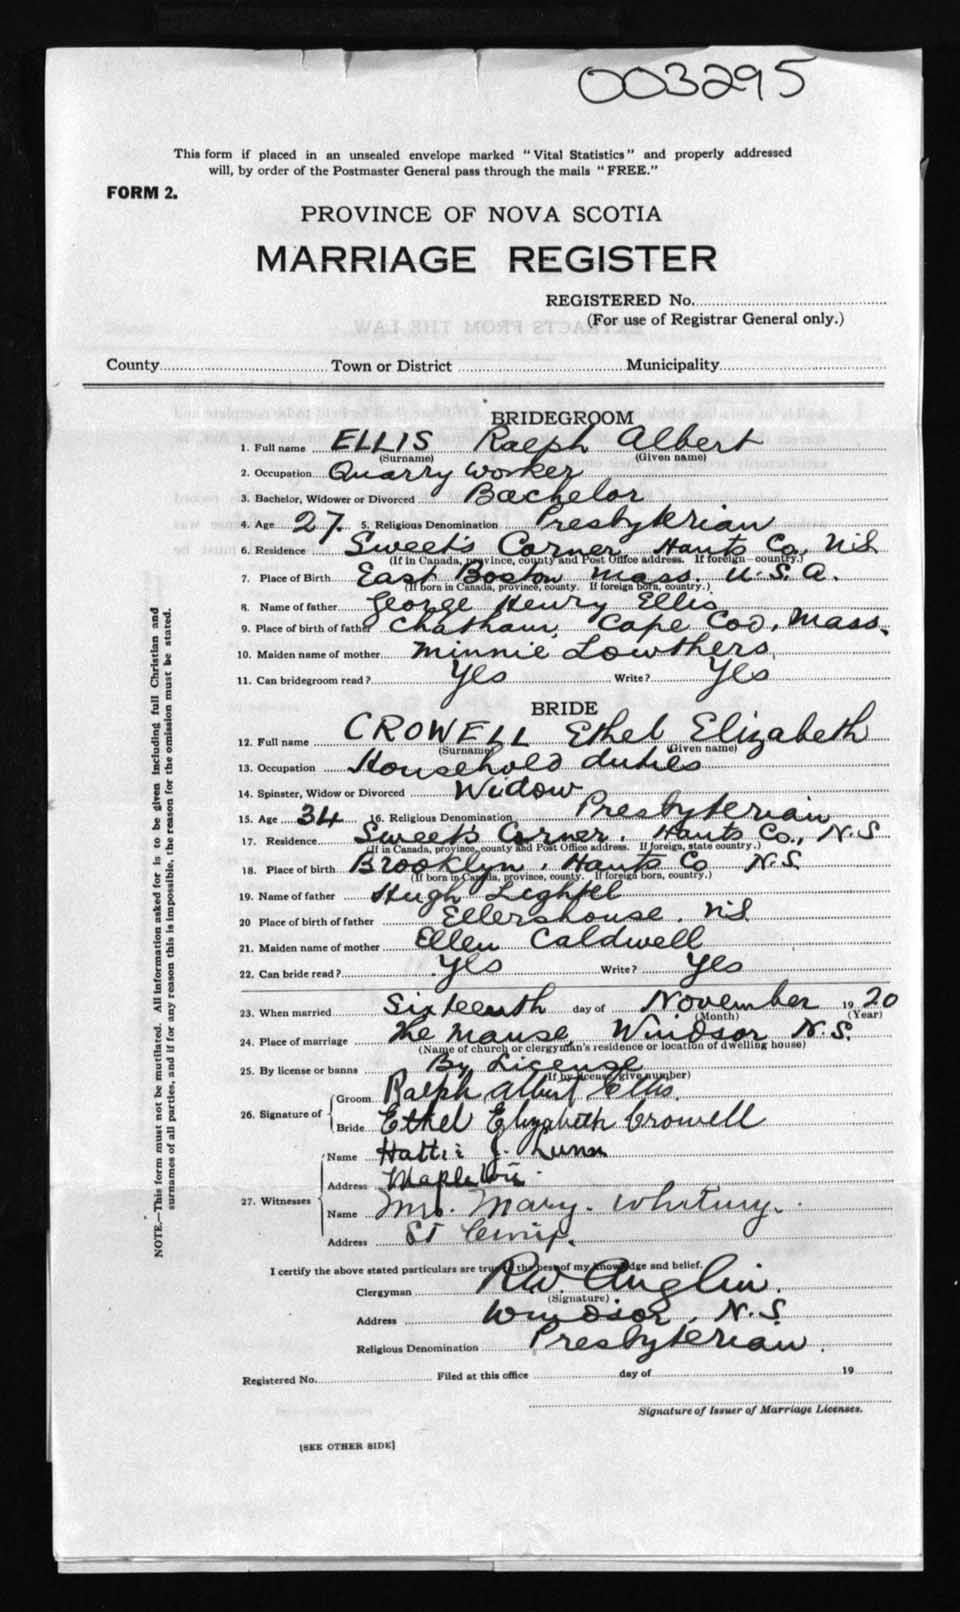 003295
This form if placed in an unsealed envelope marked "Vital Statistics" and properly addressed
will, by order of the Postmaster General pass through the mails "FREE."
FORM 2.
PROVINCE OF NOVA SCOTIA
MARRIAGE REGISTER
REGISTERED No.
(For use of Registrar General only.)
County Town or District Municipality
BRIDEGROOM
1. Full name ELLIS Ralph Albert
(Surname) (Given name)
2. Occupation Quarry Worker
3. Bachelor, Widower or Divorced Bachelor
4. Age 27. 5. Religious Denomination Presbyterian
6. Residence Sweet's Corner Hants Co, N.S.
(If in Canada, province, county and Post Office address. If foreign—country.)
7. Place of Birth East Boston Mass. U.S.A.
(If born in Canada, province, county. If foreign born, country.)
8. Name of father George Henry Ellis
9. Place of birth of father Chatham, Cape Cod, Mass.
10. Maiden name of mother Minnie Lowthers
11. Can bridegroom read? Yes Write? Yes
BRIDE
12. Full name CROWELL Ethel Elizabeth
(Surname) (Given name)
13. Occupation Household duties
14. Spinster, Widow or Divorced Widow
15. Age 34 16. Religious Denomination Presbyterian
17. Residence Sweet's Corner. Hants Co., N.S
(If in Canada, province, county and Post Office address. If foreign, state country.)
18. Place of birth Brooklyn, Hants Co N.S.
(If born in Canada, province, county. If foreign born, country.)
19. Name of father Hugh
20 Place of birth of father Ellershouse. N.S.
21. Maiden name of mother Ellen Caldwell
22. Can bride read? Yes Write? Yes
23. When married Sixteenth day of November 1920
(Month) (Year)
24. Place of marriage The Manse, Windsor N.S.
(Name of church or clergyman's residence or location of dwelling house)
25. By license or banns By License
(If by license, give number)
26. Signature of Groom Ralph Albert Ellis.
Bride Ethel Elizabeth Crowell
27. Witnesses Name Hattie J.
Address
Name Mrs. Mary. Whitney.
Address St Croix.
I certify the above stated particulars are true to the best of my knowledge and belief.
Clergyman R.W. Anglin.
(Signature)
Address Windsor, N.S.
Religious Denomination Presbyterian.
Registered No. Filed at this office day of 19
Signature of Issuer of Marriage Licenses.
[SEE OTHER SIDE]
NOTE.—This form must not be mutilated. All information asked for is to be given including full Christian and
surnames of all parties, and if for any reason this is impossible, the reason for the omission must be stated.